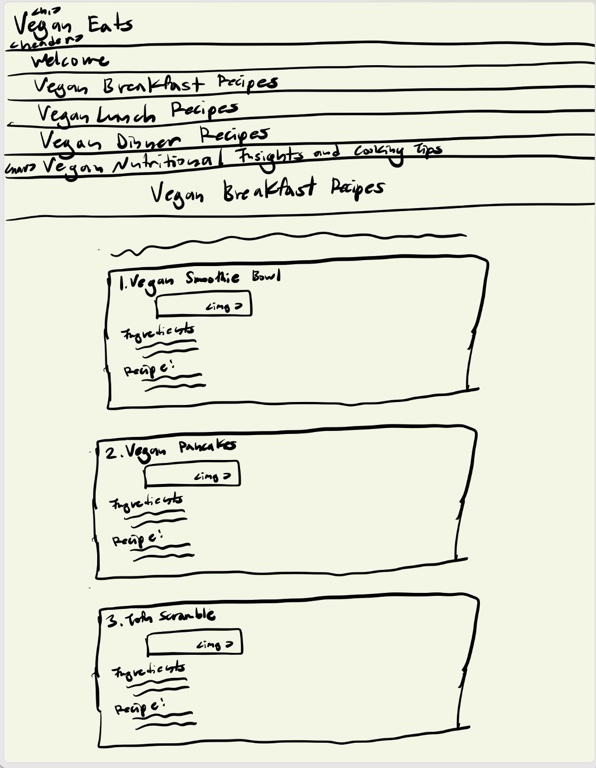 <h1>
Vegan Eats
<header>
Welcome
Vegan Breakfast Recipes
Vegan Lunch Recipes
Vegan Dinner Recipes
<nav> Vegan Nutritional Insights and Cooking Tips
Vegan Breakfast Recipes
1. Vegan Smoothie Bowl
<img>
Ingredients
Recipe:
2. Vegan Pancakes
<img>
Ingredients
Recipe:
3. Tofu Scramble
<img>
Ingredients
Recipe: